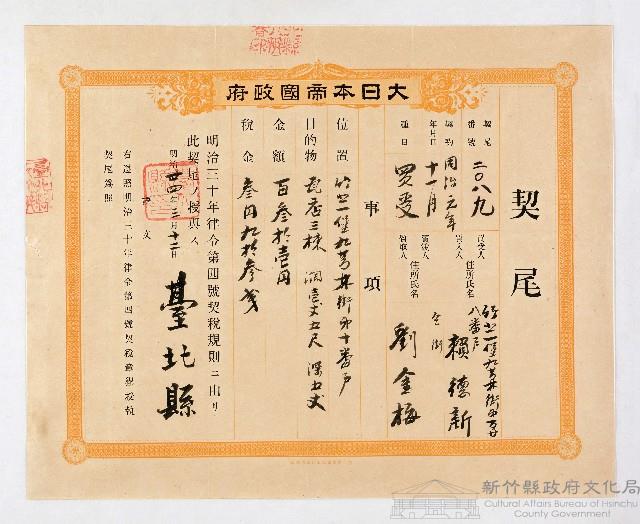 大日本帝國政府
契尾
契尾番號 二〇八九
契約年月日 同治元年十一月
種目 買受
買受人 住所氏名 竹北一堡九芎林街 八番戶 賴德新
住所氏名 仝街 劉金梅
事項
位置 竹北一堡九芎林街第十番戶
目的物 瓦店三棟 濶壹丈五尺 深五丈
金額 百叁拾壹円
稅金 叁円九拾叁戔
明治三十年律令第四號契稅規則ニ由リ
此契尾ヲ授與ス
明治卅四年三月十二日
臺北縣
右遵照明治三十年律令第四號契稅章程發執
契尾爲照
新竹縣政府文化局
Cultural Affairs Bureau of Hsinchu
County Government